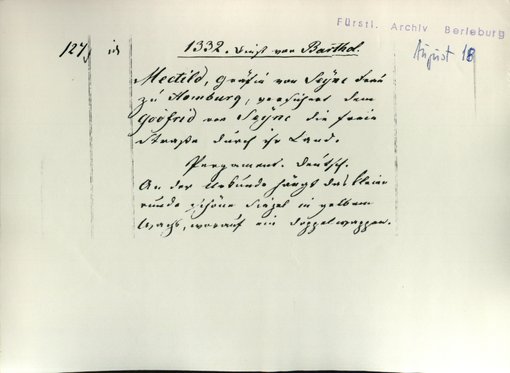 Fürstl. Archiv Berleburg
August 18
127, id 1332. Dinst. vor Barthol.
Mectild, Gräfin von Seyne Frau
zu Homburg, versichert dem
Godfrid von Seyne die freie
Straße durch ihr Land.
Pergament. Deutsch.
An der Urkunde hängt das kleine
runde schöne Siegel in gelbem
Wachs, worauf ein Doppelwappen.